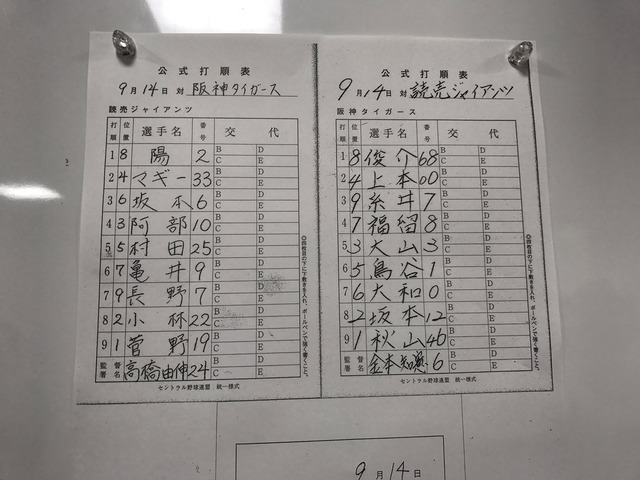 公式打順表
9月14日 対 阪神タイガース
読売ジャイアンツ
打順 位置 選手名 番号 交代
1 8 陽 2 B C D E
2 4 マギー 33 B C D E
3 6 坂本 6 B C D E
4 3 阿部 10 B C D E
5 5 村田 25 B C D E
6 7 亀井 9 B C D E
7 9 長野 7 B C D E
8 2 小林 22 B C D E
9 1 菅野 19 B C D E
監督署名 高橋由伸 24
セントラル野球連盟 統一様式
公式打順表
9月14日 対 読売ジャイアンツ
阪神タイガース
打順 位置 選手名 番号 交代
1 8 俊介 68 B C D E
2 4 上本 00 B C D E
3 9 糸井 7 B C D E
4 7 福留 8 B C D E
5 3 大山 3 B C D E
6 5 鳥谷 1 B C D E
7 6 大和 0 B C D E
8 2 坂本 12 B C D E
9 1 秋山 46 B C D E
監督署名 金本知憲 6
セントラル野球連盟 統一様式
◎四枚目の下に下敷きを入れ、ボールペンで強く書くこと。
◎四枚目の下に下敷きを入れ、ボールペンで強く書くこと。
9月14日